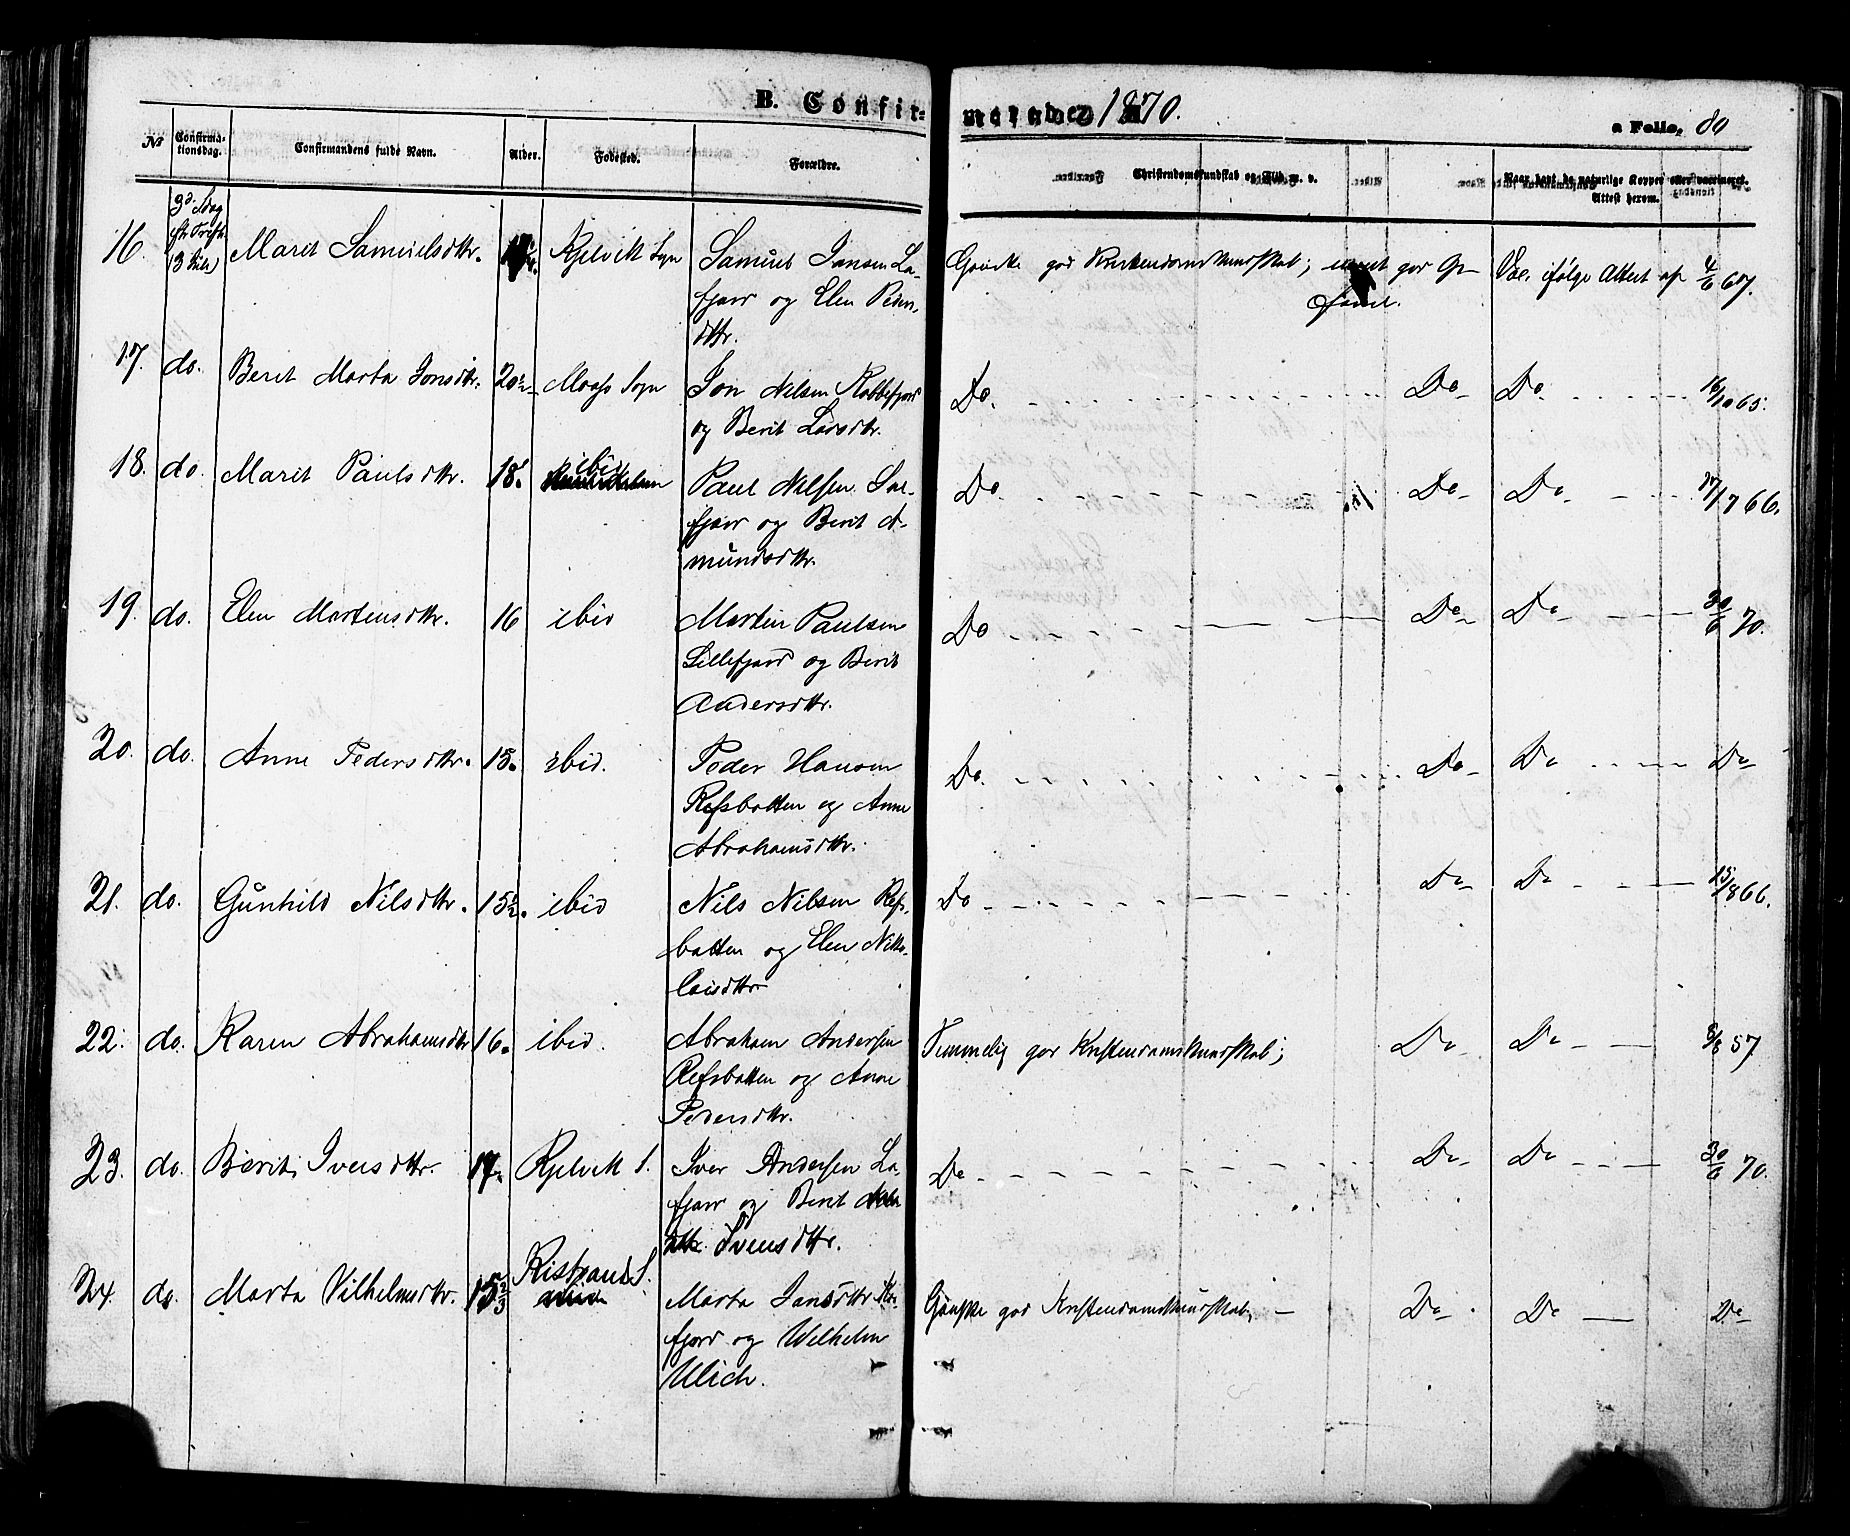 B. Confirmerede 1870.
a Folio, 80
No
Confirmationsdag.
Confirmandens fulde Navn.
Alder.
Fødested.
Forældre.
Christendomskundskab og Flid m. v.
Naar havt de naturlige Kopper eller vaccineret. Attest herom.
16. 3d. Sdag eftr Trefk. 13 Kjelvik Sogn
Marit Samuelsdtr.
Samuel Jansen La-
fjord og Elen Peders-
dtr.
Ganske god Kristendomskundskab; meget god Op-
førsel.
Vac. ifølge Attest af 4/6 67.
17. do. Berit Marta Jonsdtr. 20 1/2 Maasø Sogn
Jon Nilsen Kobbefjord
og Berit Larsdtr.
Do. Do Do. 16/10 65.
18. do. Marit Paulsdtr. 18. ibid
Paul Nilsen
fjord og Berit A-
mundsdtr.
Do Do Do 17/7 66.
19. do. Elen Martensdtr. 16 ibid
Martin Paulsen
Lillefjord og Berit
Andersdtr.
Do Do Do 30/6 70.
20. do. Anne Pedersdtr. 15. ibid.
Peder Hansen
Refsbotten og Anne
Abrahamsdtr.
Do. Do Do Do
21. do. Gunhild Nilsdtr. 15 1/2. ibid
Nils Nilsen Refs-
botten og Elen Niko-
laisdtr
Do Do Do 15/8 66.
22. do. Karen Abrahamsdtr 16. ibid.
Abraham Andersen
Refsbotten og Anne
Pedersdtr.
Temmelig god Kristendomskundskab; Do Do 8/8 57
23. do. Berit Iversdtr. 17. Kjelvik S.
Iver Andersen La-
fjord og Berit
Ivensdtr.
Do Do Do 30/6 70.
24. do. Marta Vilhelmsdtr. 15 2/3 Kistrand S.
Marta Jansdtr
fjord og Wilhelm
Ulich.
Ganske god Kristendomskundskab, Do Do Do